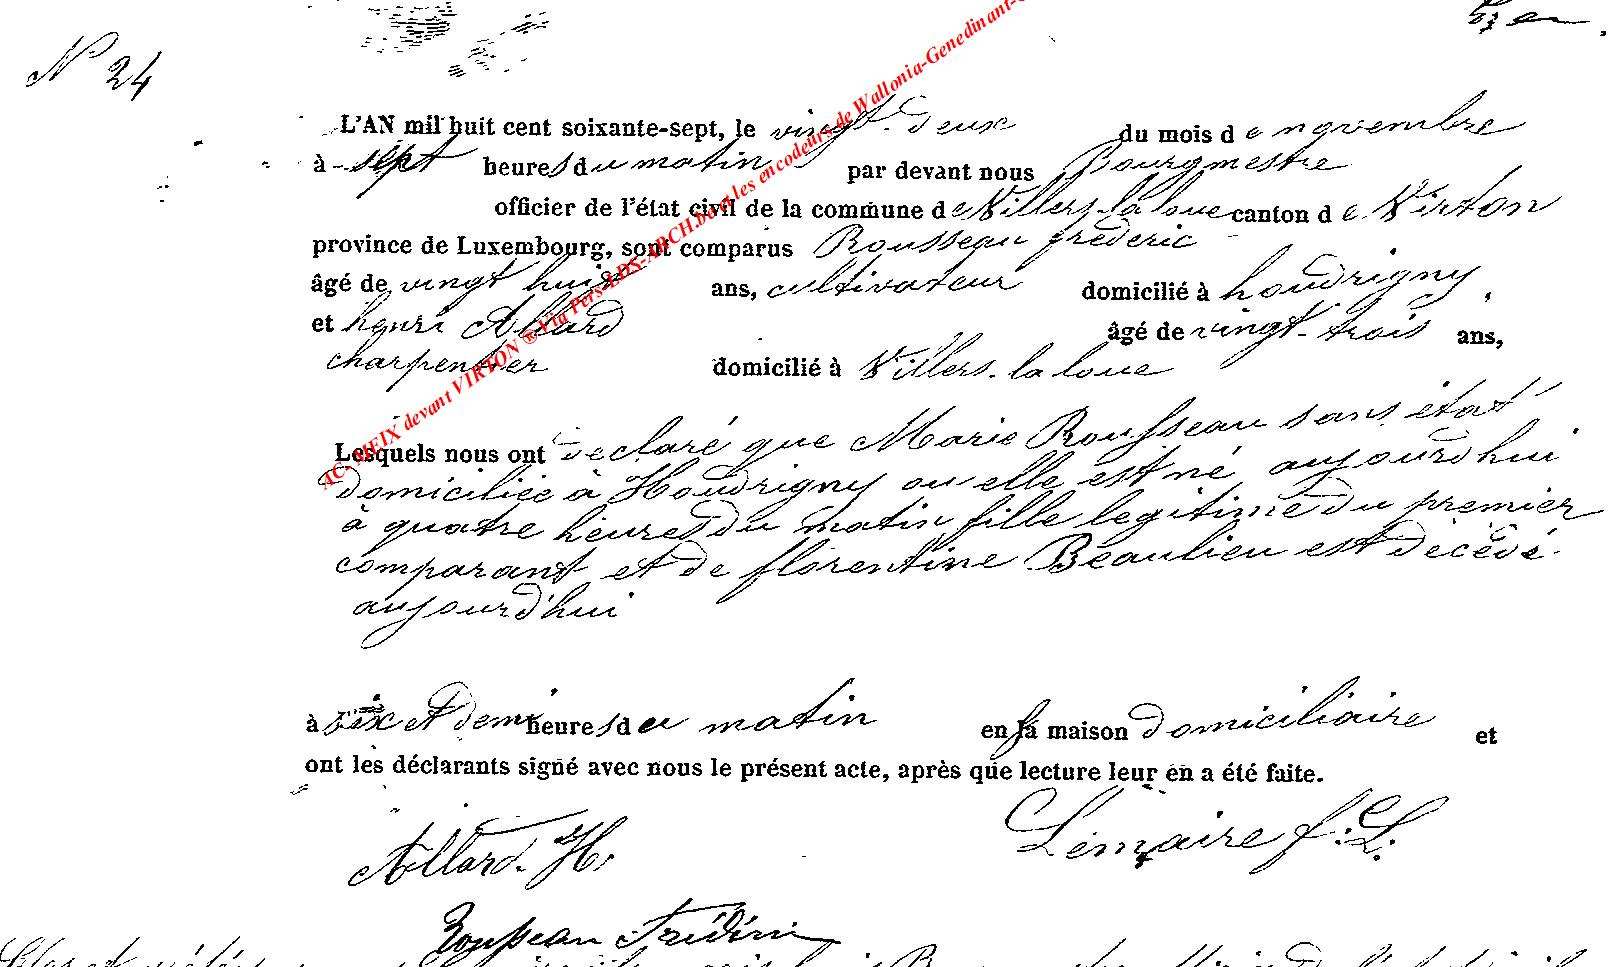 N 24
L'AN mil huit cent soixante-sept, le vingt-deux du mois de novembre
à sept heures du matin par devant nous Bourgmestre
officier de l'état civil de la commune de Villers-la loue canton de Virton
province de Luxembourg, sont comparus Rousseau frédéric
âgé de vingt huit ans, cultivateur domicilié à houdrigny
et henri Allard âgé de vingt-trois ans,
charpentier domicilié à Villers-la loue
Lesquels nous ont declaré que Marie Rousseau sans état
domiciliée à Houdrigny ou elle est né aujourd hui
à quatre heures du matin fille legitime du premier
comparant et de florentine Beaulieu est décédé
aujourd'hui
à six et demi heures du matin en sa maison domiciliaire et
ont les déclarants signé avec nous le présent acte, après que lecture leur en a été faite.
Allard. H. Lemaire f. L.
Rousseau Frédéric
AC-MEIX devant VIRTON ® Via Pers-LDS-ARCH.be et les encodeurs de Wallonia-Genedinant-